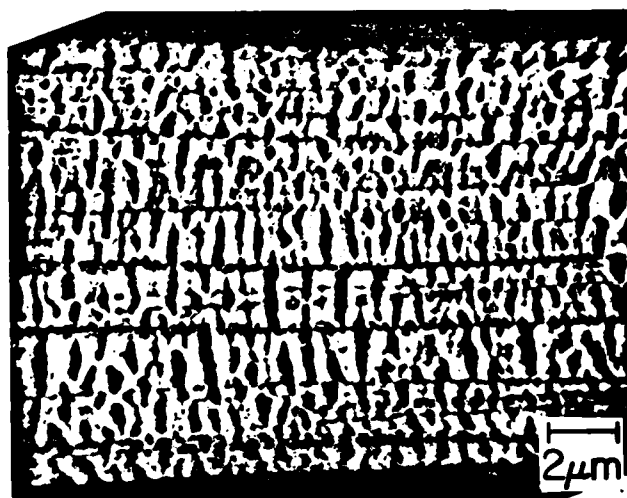 2μm